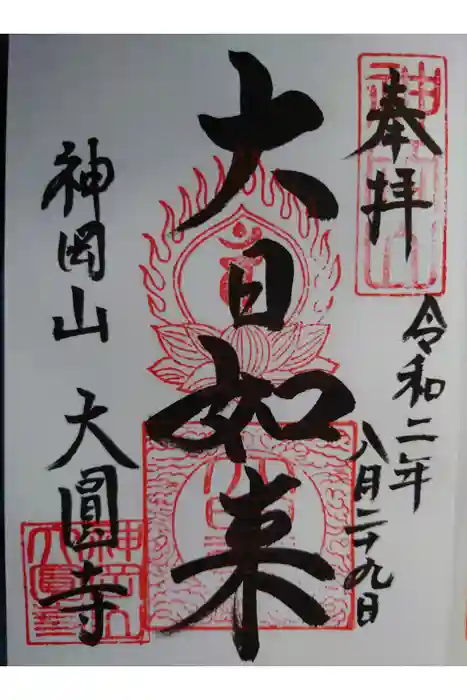 奉拝
令和二年
八月二十九日
大日如来
神岡山
大圓寺